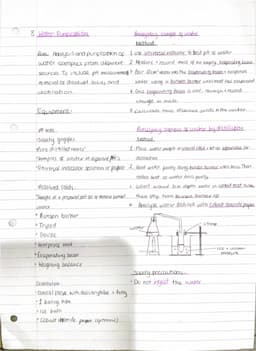 8 Water Purification
Aim: Analysis and purification of
water samples from different
sources. To include pH measurement,
removal of dissolved solids and
distillation.
Equipment:
pH test
• Safety goggles
• Samples of water of different pH's
• Universal indicator solution or paper
Dissolved solids
• Bunsen burner
• Tripod
• Gauze
• Heatproof mat
• Evaporating basin
• Weighing balance
Distillation
• Conical flask with delivery tube + bung
• 1 boiling tube
• Ice bath
• (Cobalt chloride paper (optional))
Analysing sample of water
Method
1 Use universal indicator to test pH of water
2 Measure + record mass of an empty evaporating basin
3 Pour into the evaporating basin + evaporate
water using a Bunsen burner until most has evaporated
4 Once evaporating basin is cool, reweigh + record
change in mass
5 Calculate mass dissolved solids in the water.
Analysing sample of water by distillation
Method
1 Place water sample in conical flask + set up apparatus for
distillation
2 Heat water gently using Bunsen burner until boils. Then
reduce heat so water boils gently
3 Collect around 1cm depth water in cooled test tube,
then stop heating
4 Analyse water distilled with cobalt chloride paper
water
steam
ice + water
mixture
Safety precautions
• Do not ingest the water